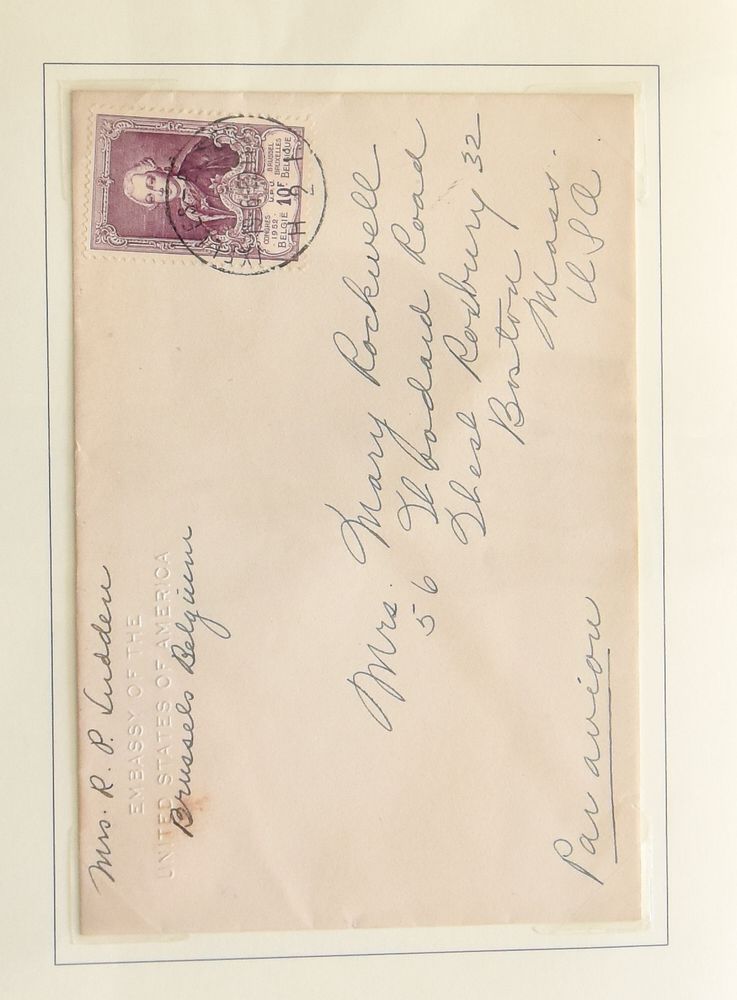 Mrs. R. P. Ludden
EMBASSY OF THE
UNITED STATES OF AMERICA
Brussels Belgium
CONGRES
1952
U.P.U.
BRUSSEL
BRUXELLES
BELGIË 10F BELGIQUE
Mrs. Mary Rockwell
56 Road
Roxbury 32
Boston
Mass.
USA.
Par avion